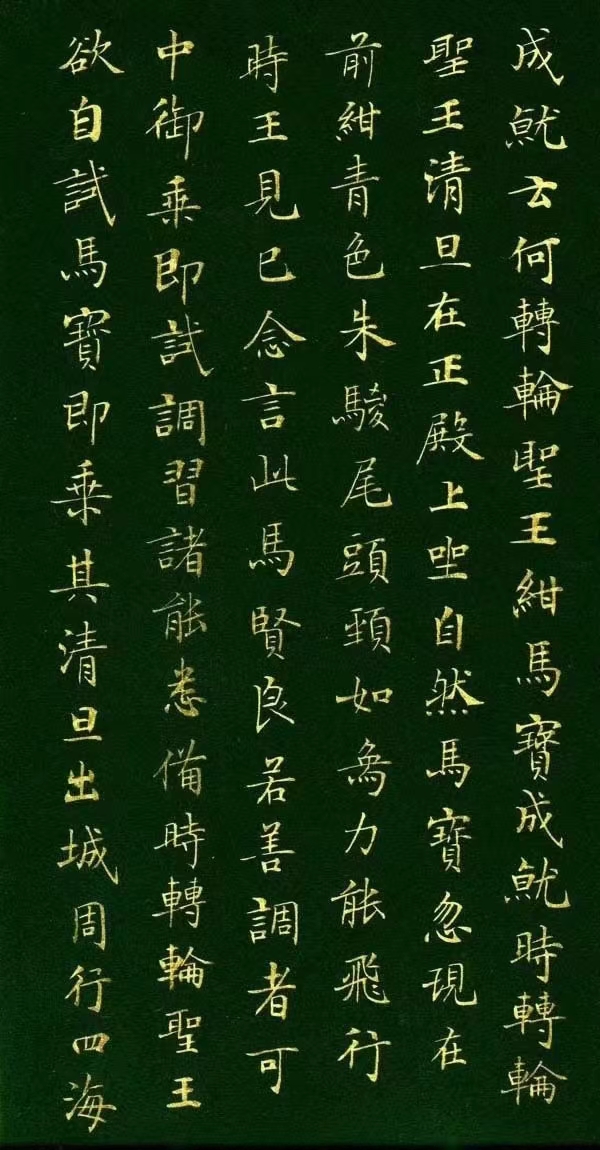 成就云何轉輪聖王紺馬寶成就時轉輪
聖王清旦在正殿上坐自然馬寶忽現在
前紺青色朱騣尾頭頸如為力能飛行
時王見已念言此馬賢良若善調者可
中御乗即試調習諸能悉備時轉輪聖王
欲自試馬寶即乗其清旦出城周行四海